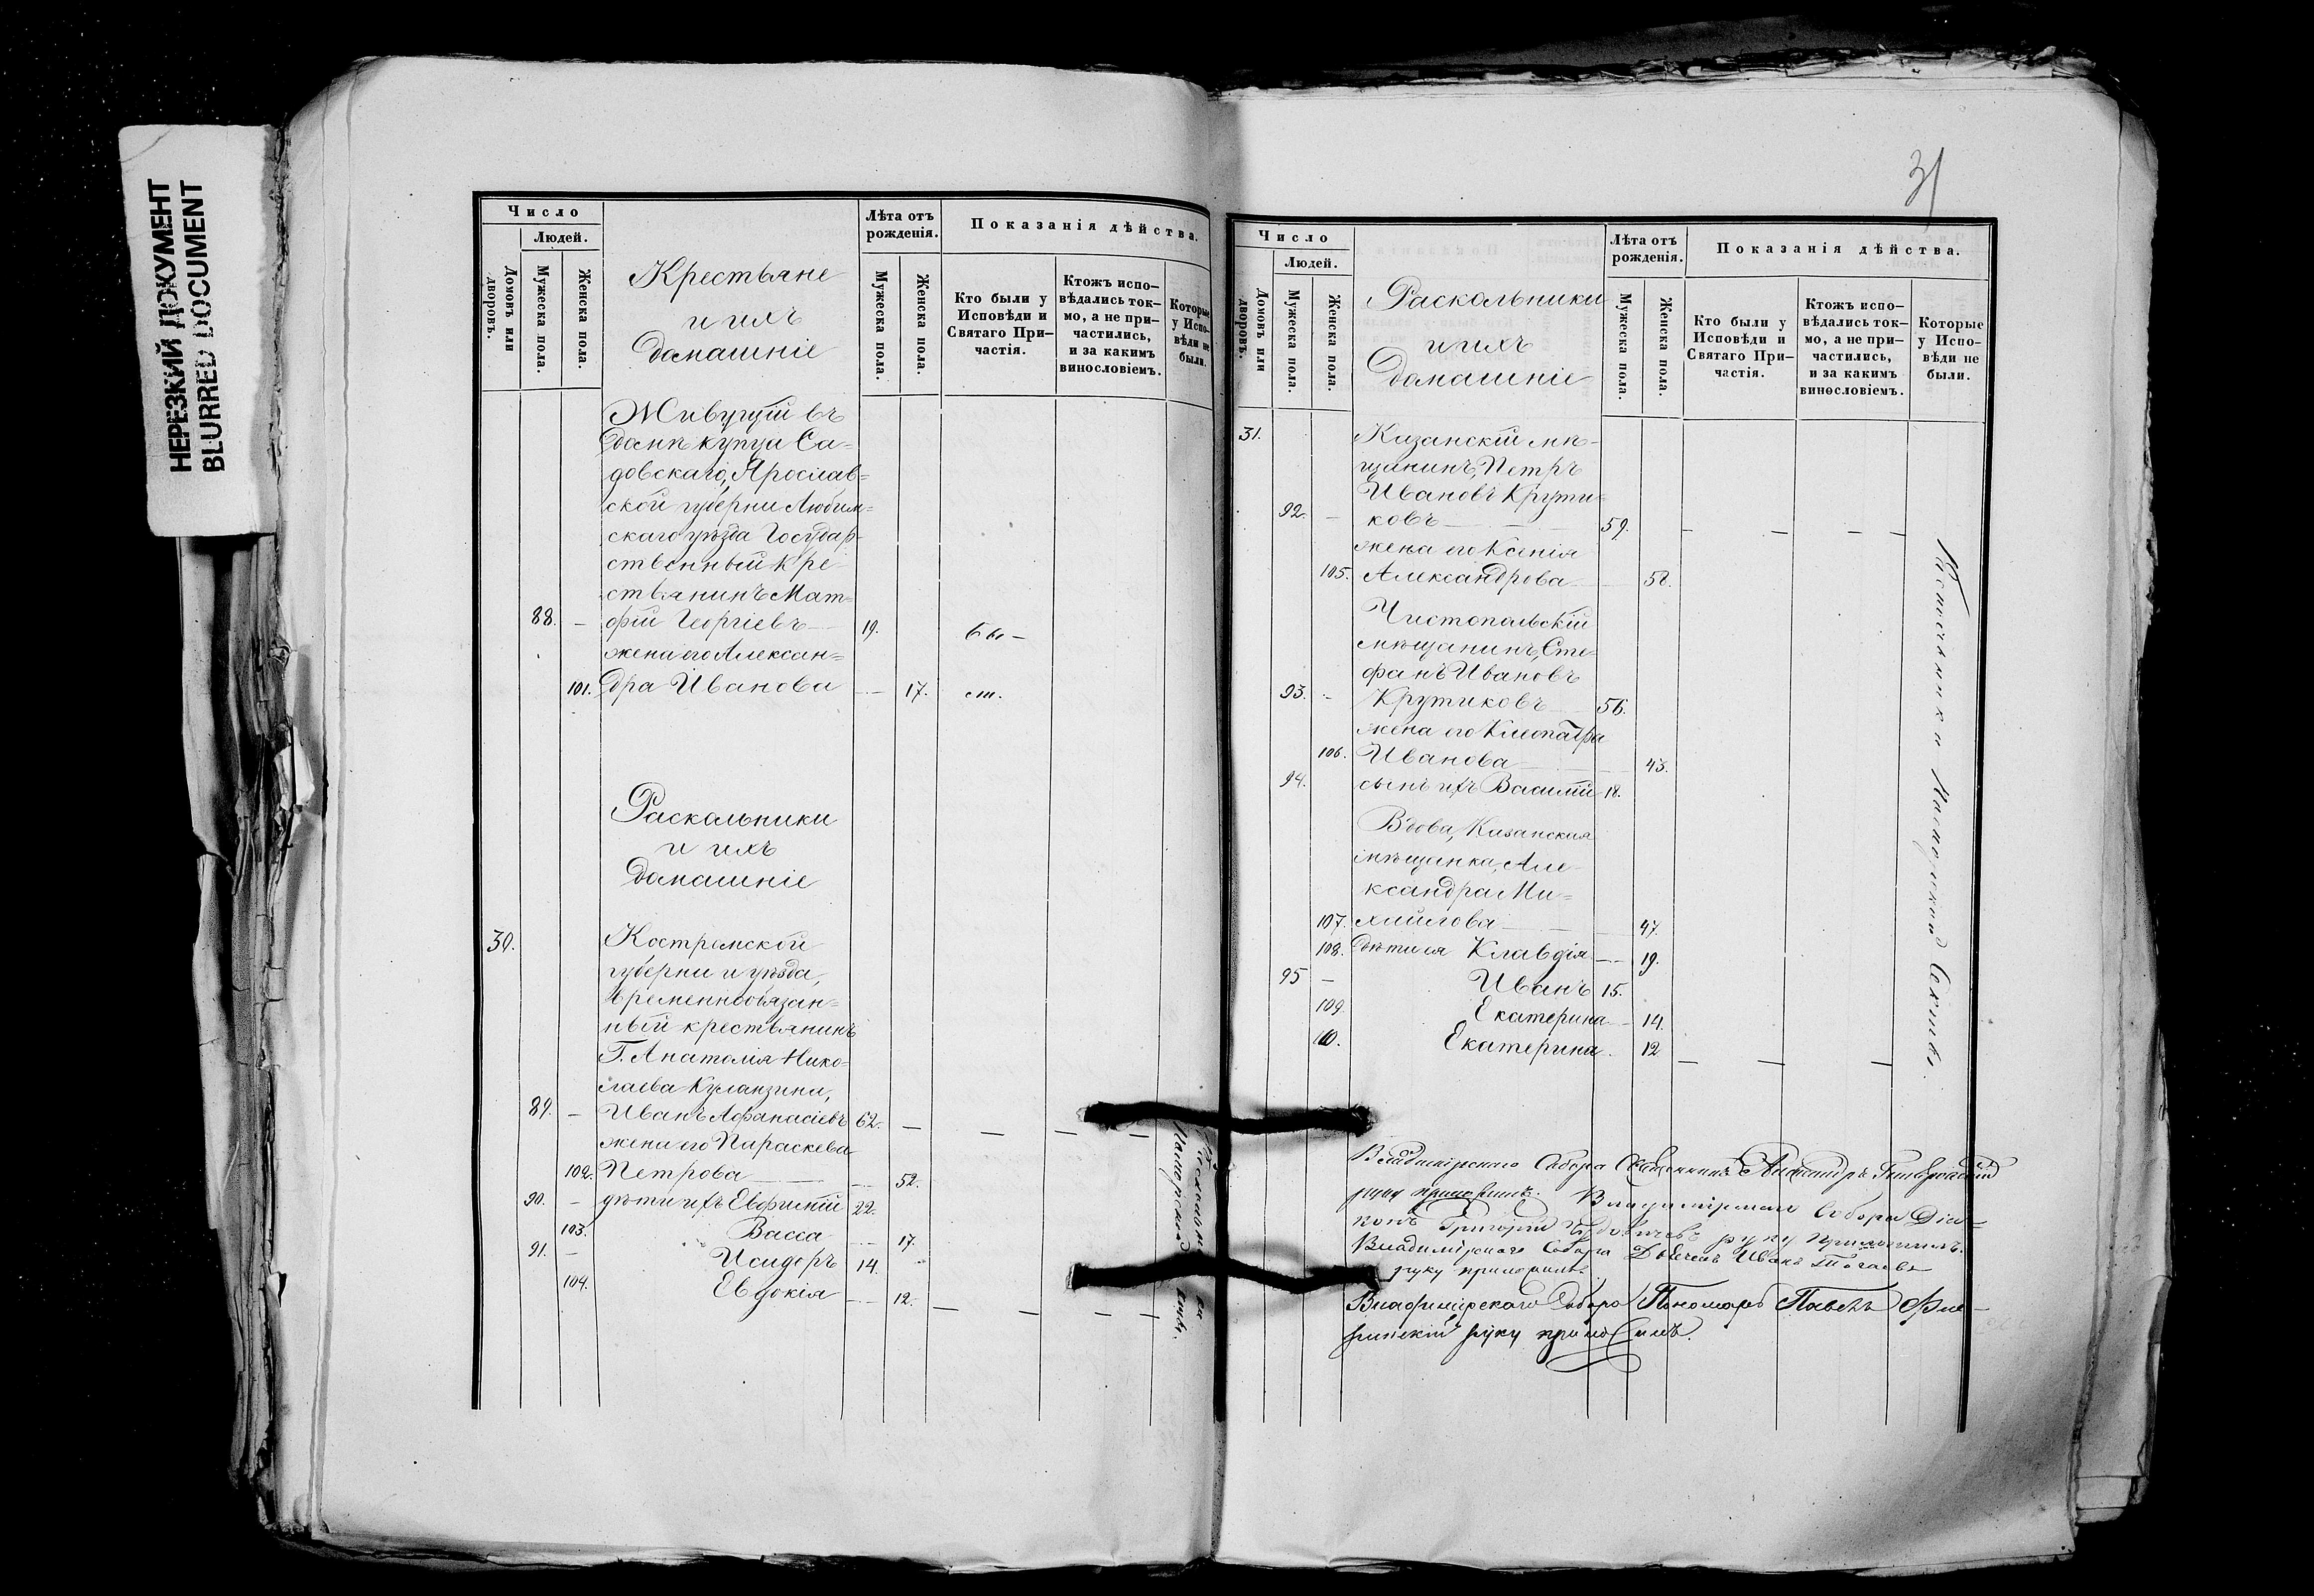 НЕРЕЗКИЙ ДОКУМЕНТ
BLURRED DOCUMENT
Число
Людей.
Домовъ или дворовъ.
Мужеска пола.
Женска пола.
Крестьяне
и ихъ
домашніе
Лѣта отъ рожденія.
Мужеска пола.
Женска пола.
Показанія дѣйства.
Кто были у Исповѣди и Святаго При-частія.
Ктожъ испо-вѣдались ток-мо, а не при-частились, и за какимъ винословіемъ.
Которые у Испо-вѣди не были.
Живущій въ
домѣ купца Са=
довскаго, Ярослав=
ской губерни Любим=
скаго уѣзда Государ-
ственный кре
стьянинъ Мат=
88. — фій Георгіевъ — 19. бы —
жена его Алексан=
101. дра Иванова — 17. ст.
Раскольники
и ихъ
домашніе
30. Костромской
губерни и уѣзда,
временнообязан=
ный крестьянинъ
Г. Анатолія Нико=
лаева Куломзина,
89. — Иванъ Афанасіевъ 62. — — — —
жена его Параскева
102. Петрова — 52.
90. — дѣти ихъ Евфимій 22.
103. Васса — 17.
91. — Исидоръ 14.
104. Евдокія — 12. — — — —
31
Число
Людей.
Домовъ или дворовъ.
Мужеска пола.
Женска пола.
Раскольники
и ихъ
домашніе
Лѣта отъ рожденія.
Мужеска пола.
Женска пола.
Показанія дѣйства.
Кто были у Исповѣди и Святаго При-частія.
Ктожъ испо-вѣдались ток-мо, а не при-частились, и за какимъ винословіемъ.
Которые у Испо-вѣди не были.
31. Казанскій мѣ-
щанинъ, Петръ
Ивановъ Крути-
92. — ковъ — 59. — — — —
жена его Ксенія
105. Александрова — 52.
Чистопольскій
мѣщанинъ, Сте-
фанъ Ивановъ
93. — Крутиковъ 56.
жена его Клеопатра
106. Иванова — 43.
94. сынъ ихъ Василій 18.
Вдова, Казанская
мѣщанка, Але-
ксандра Ми=
107. хайлова — 47.
108. дѣти ея Клавдія — 19.
95 — Иванъ 15.
109. Екатерина — 14.
110. Екатерина. 12 — — —
Поморской секты.
Владимірскаго Собора Священникъ Александръ
руку приложилъ. Владимірскаго Собора Діа=
конъ Григорій руку приложилъ.
Владимірскаго Собора Дьячекъ Иванъ
руку приложилъ
Владимірскаго Собора Пономарь Павелъ
руку приложилъ.